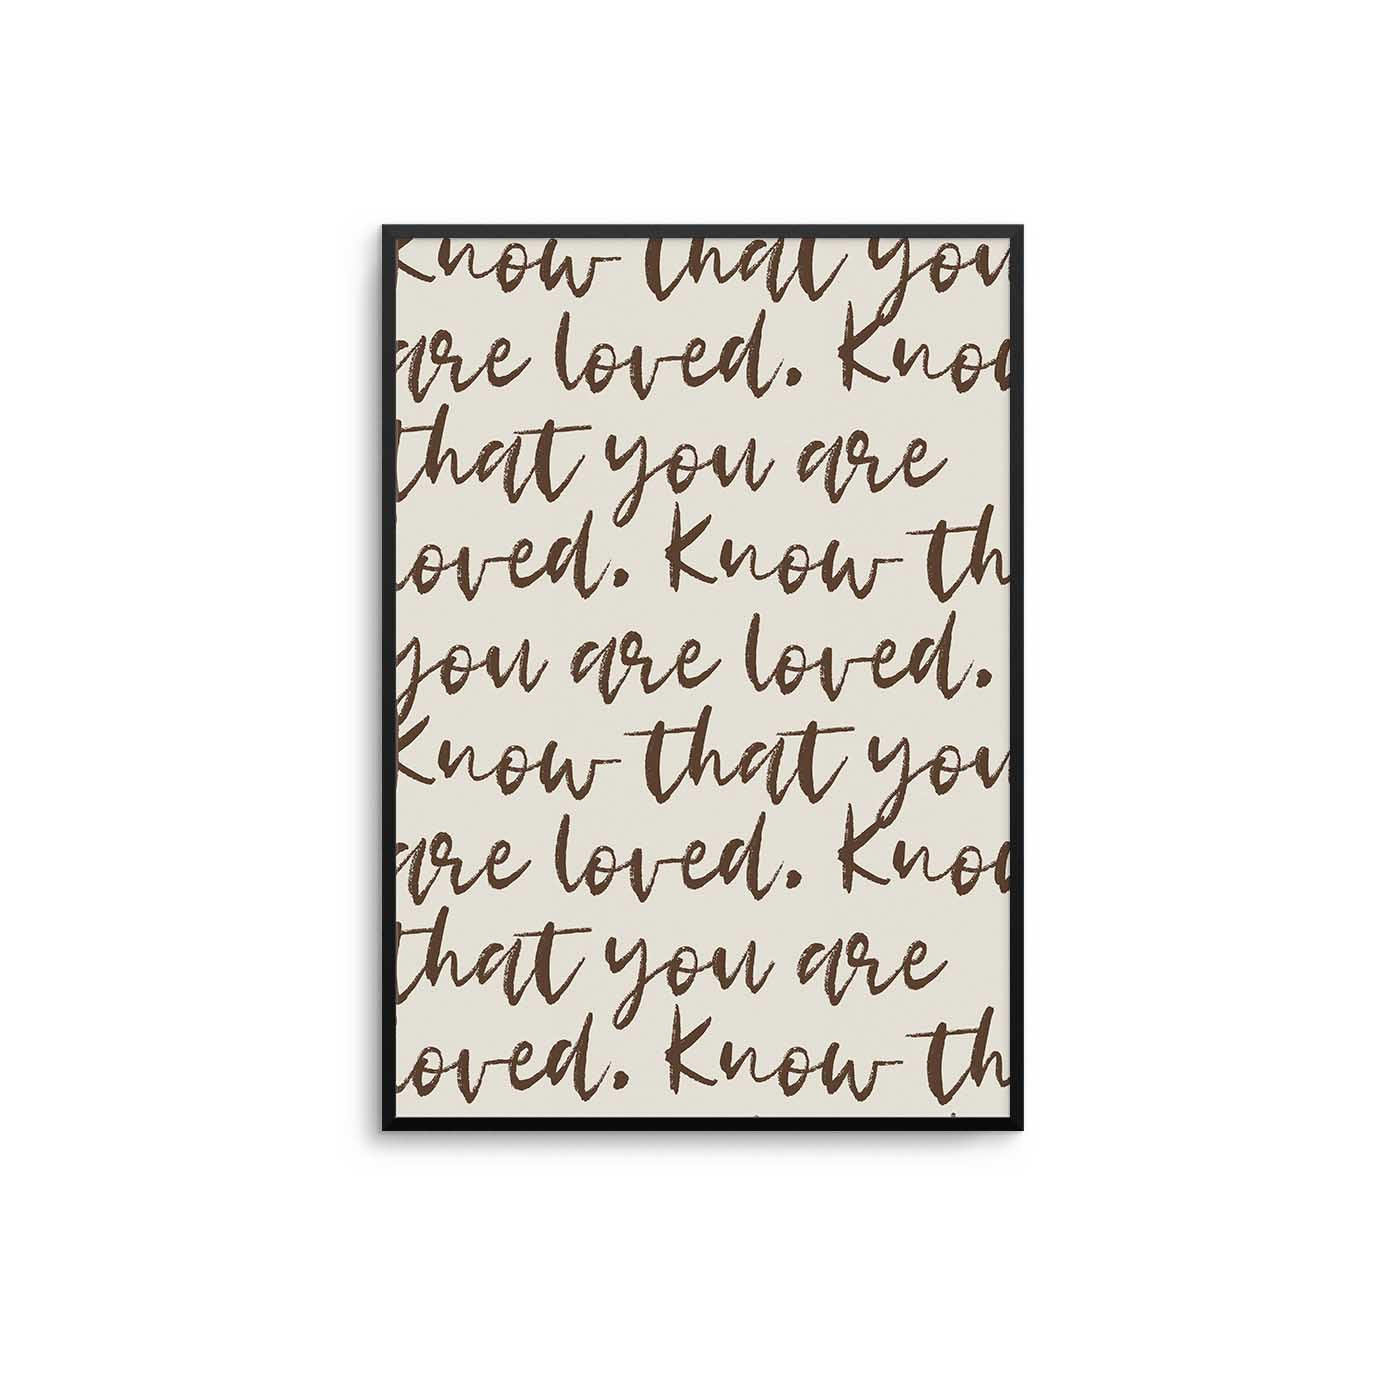 Know that you
are loved. Know
that you are
loved. Know th
you are loved.
Know that you
are loved. Know
that you are
loved. Know th